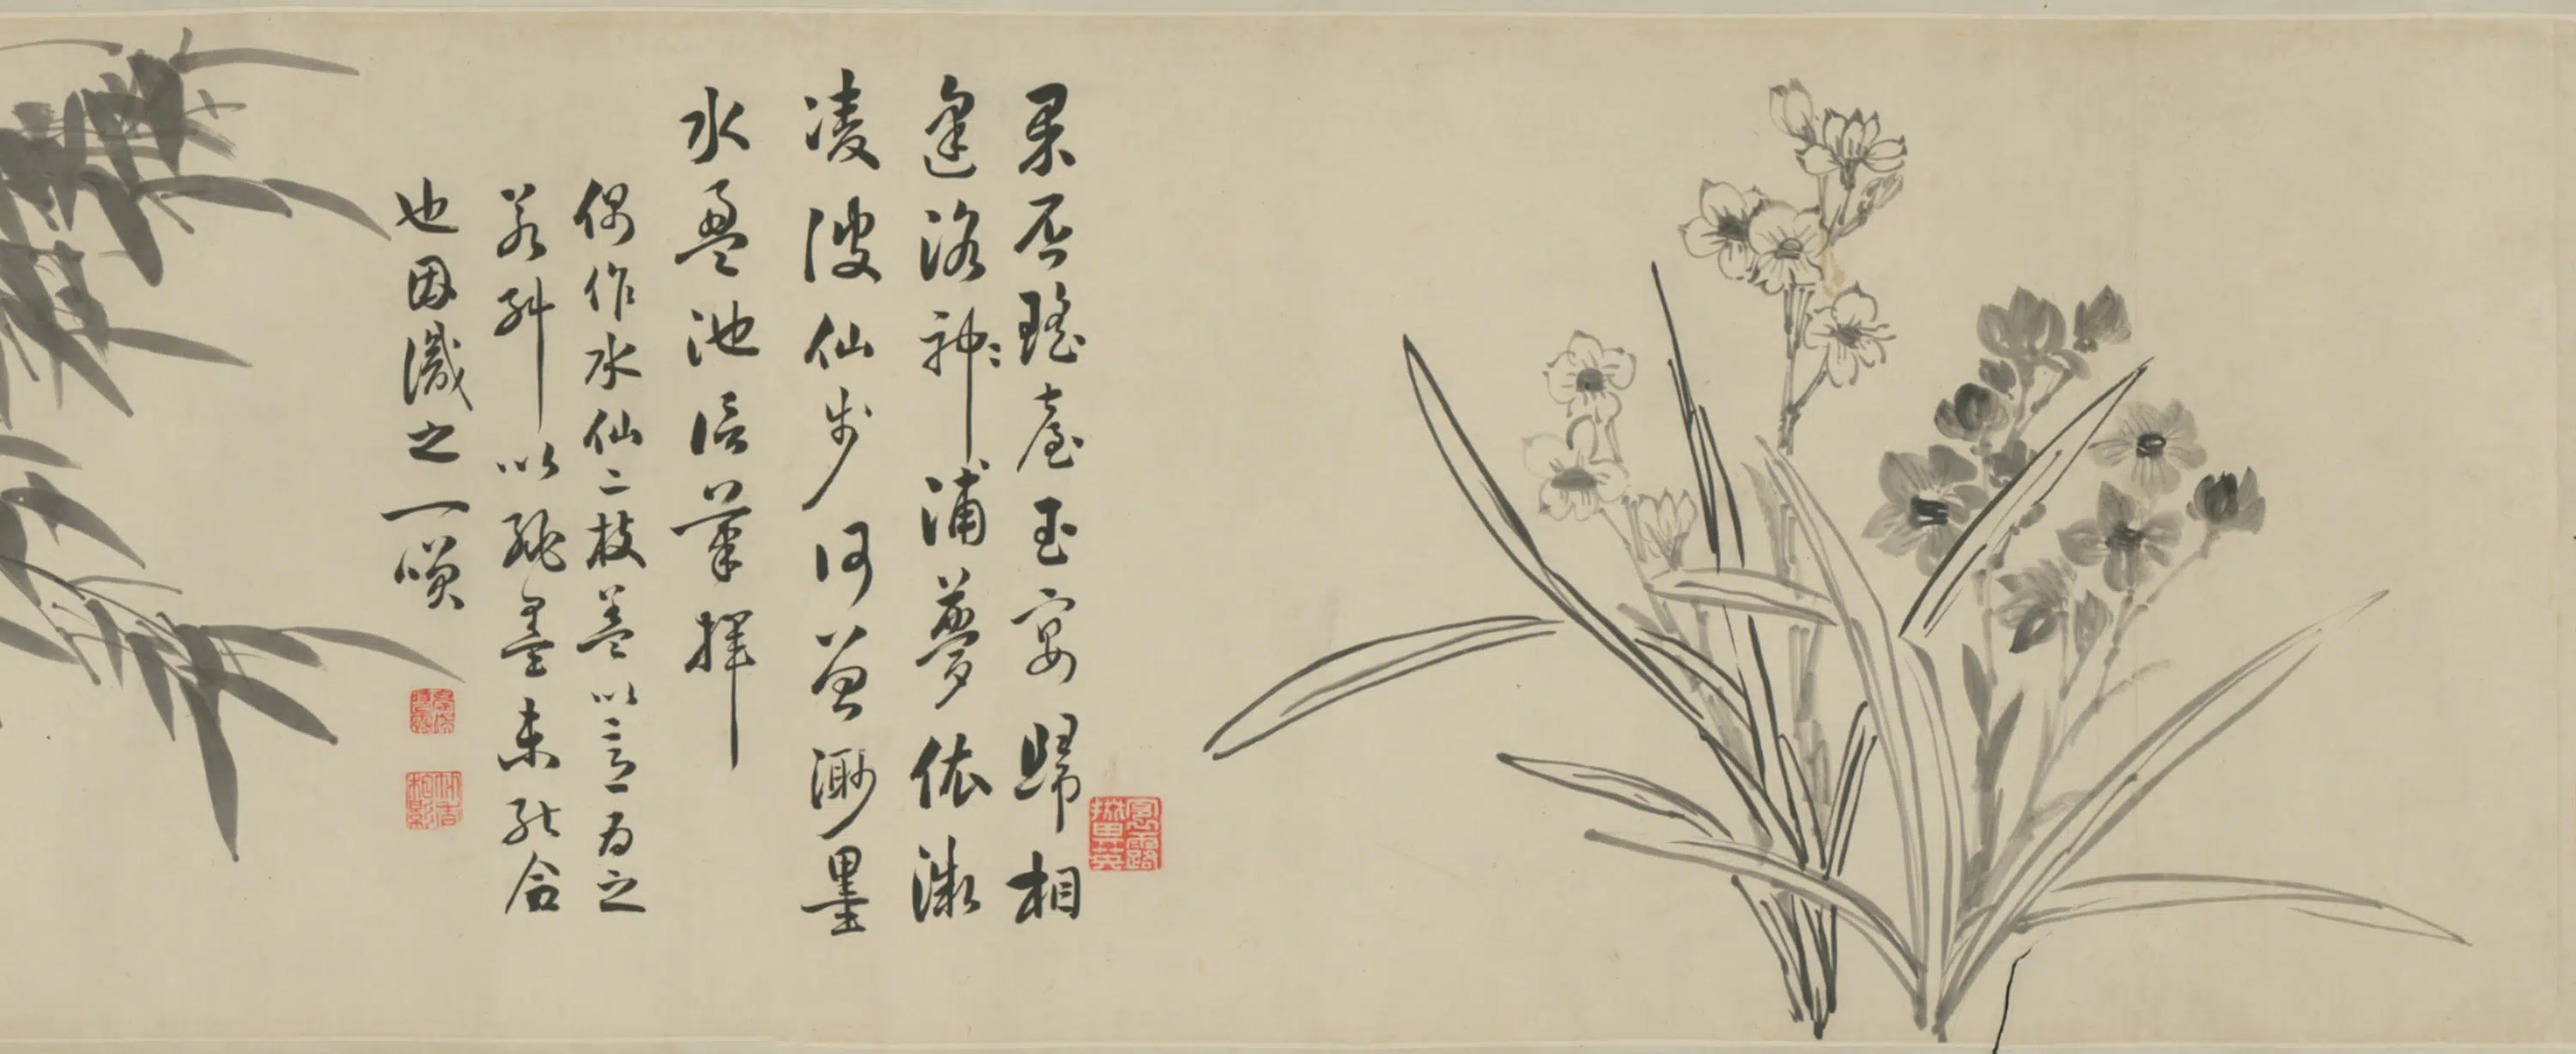 果否瑤臺玉宴歸相
逢洛神浦夢依微
凌波仙步何曾渺墨
水盈池信筆揮
偶作水仙二枝蓋以意為之
若糾以繩墨未能合
也因識之一